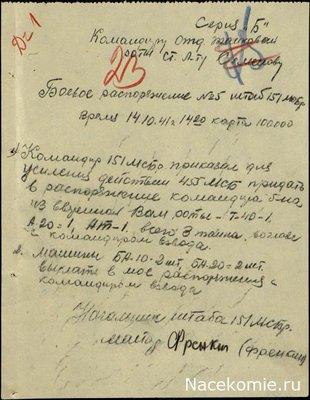 Серия "Б"
Д-1
Командиру отд. танковой
роты ст. л-ту
213
Боевое распоряжение №5 штаб 151 мсбр
Время 14.10.41 г 1420 карта 100000
1) Командир 151 МСБР приказал для
усиления действий 455 МСБ придать
в распоряжение командира б-на
из вверенной Вам роты - Т-40-1,
А-20=1, всего 3 танка, во главе
с командиром взвода.
2. Машины БА-10-2 шт, БА-20=2 шт.
выслать в мое распоряжения с
командиром взвода
Начальник штаба 151 МСБр.
майор Френкин (Френкин)
Nacekomie.ru